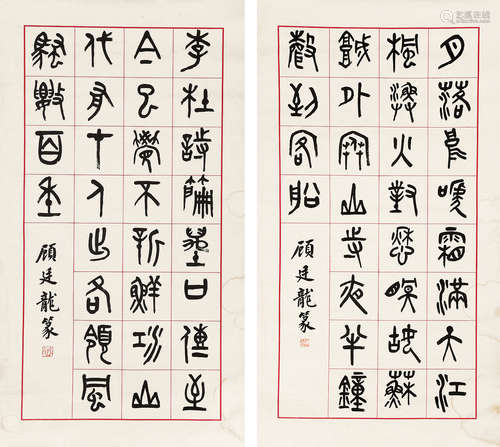 月落烏嗁霜滿天江
楓漁火對愁眠姑蘇
城外寒山寺夜半鐘
聲到客船
顧廷龍篆
李杜詩篇萬口傳至
今已覺不新鮮江山
代有才人出各領風
騷數百年
顧廷龍篆